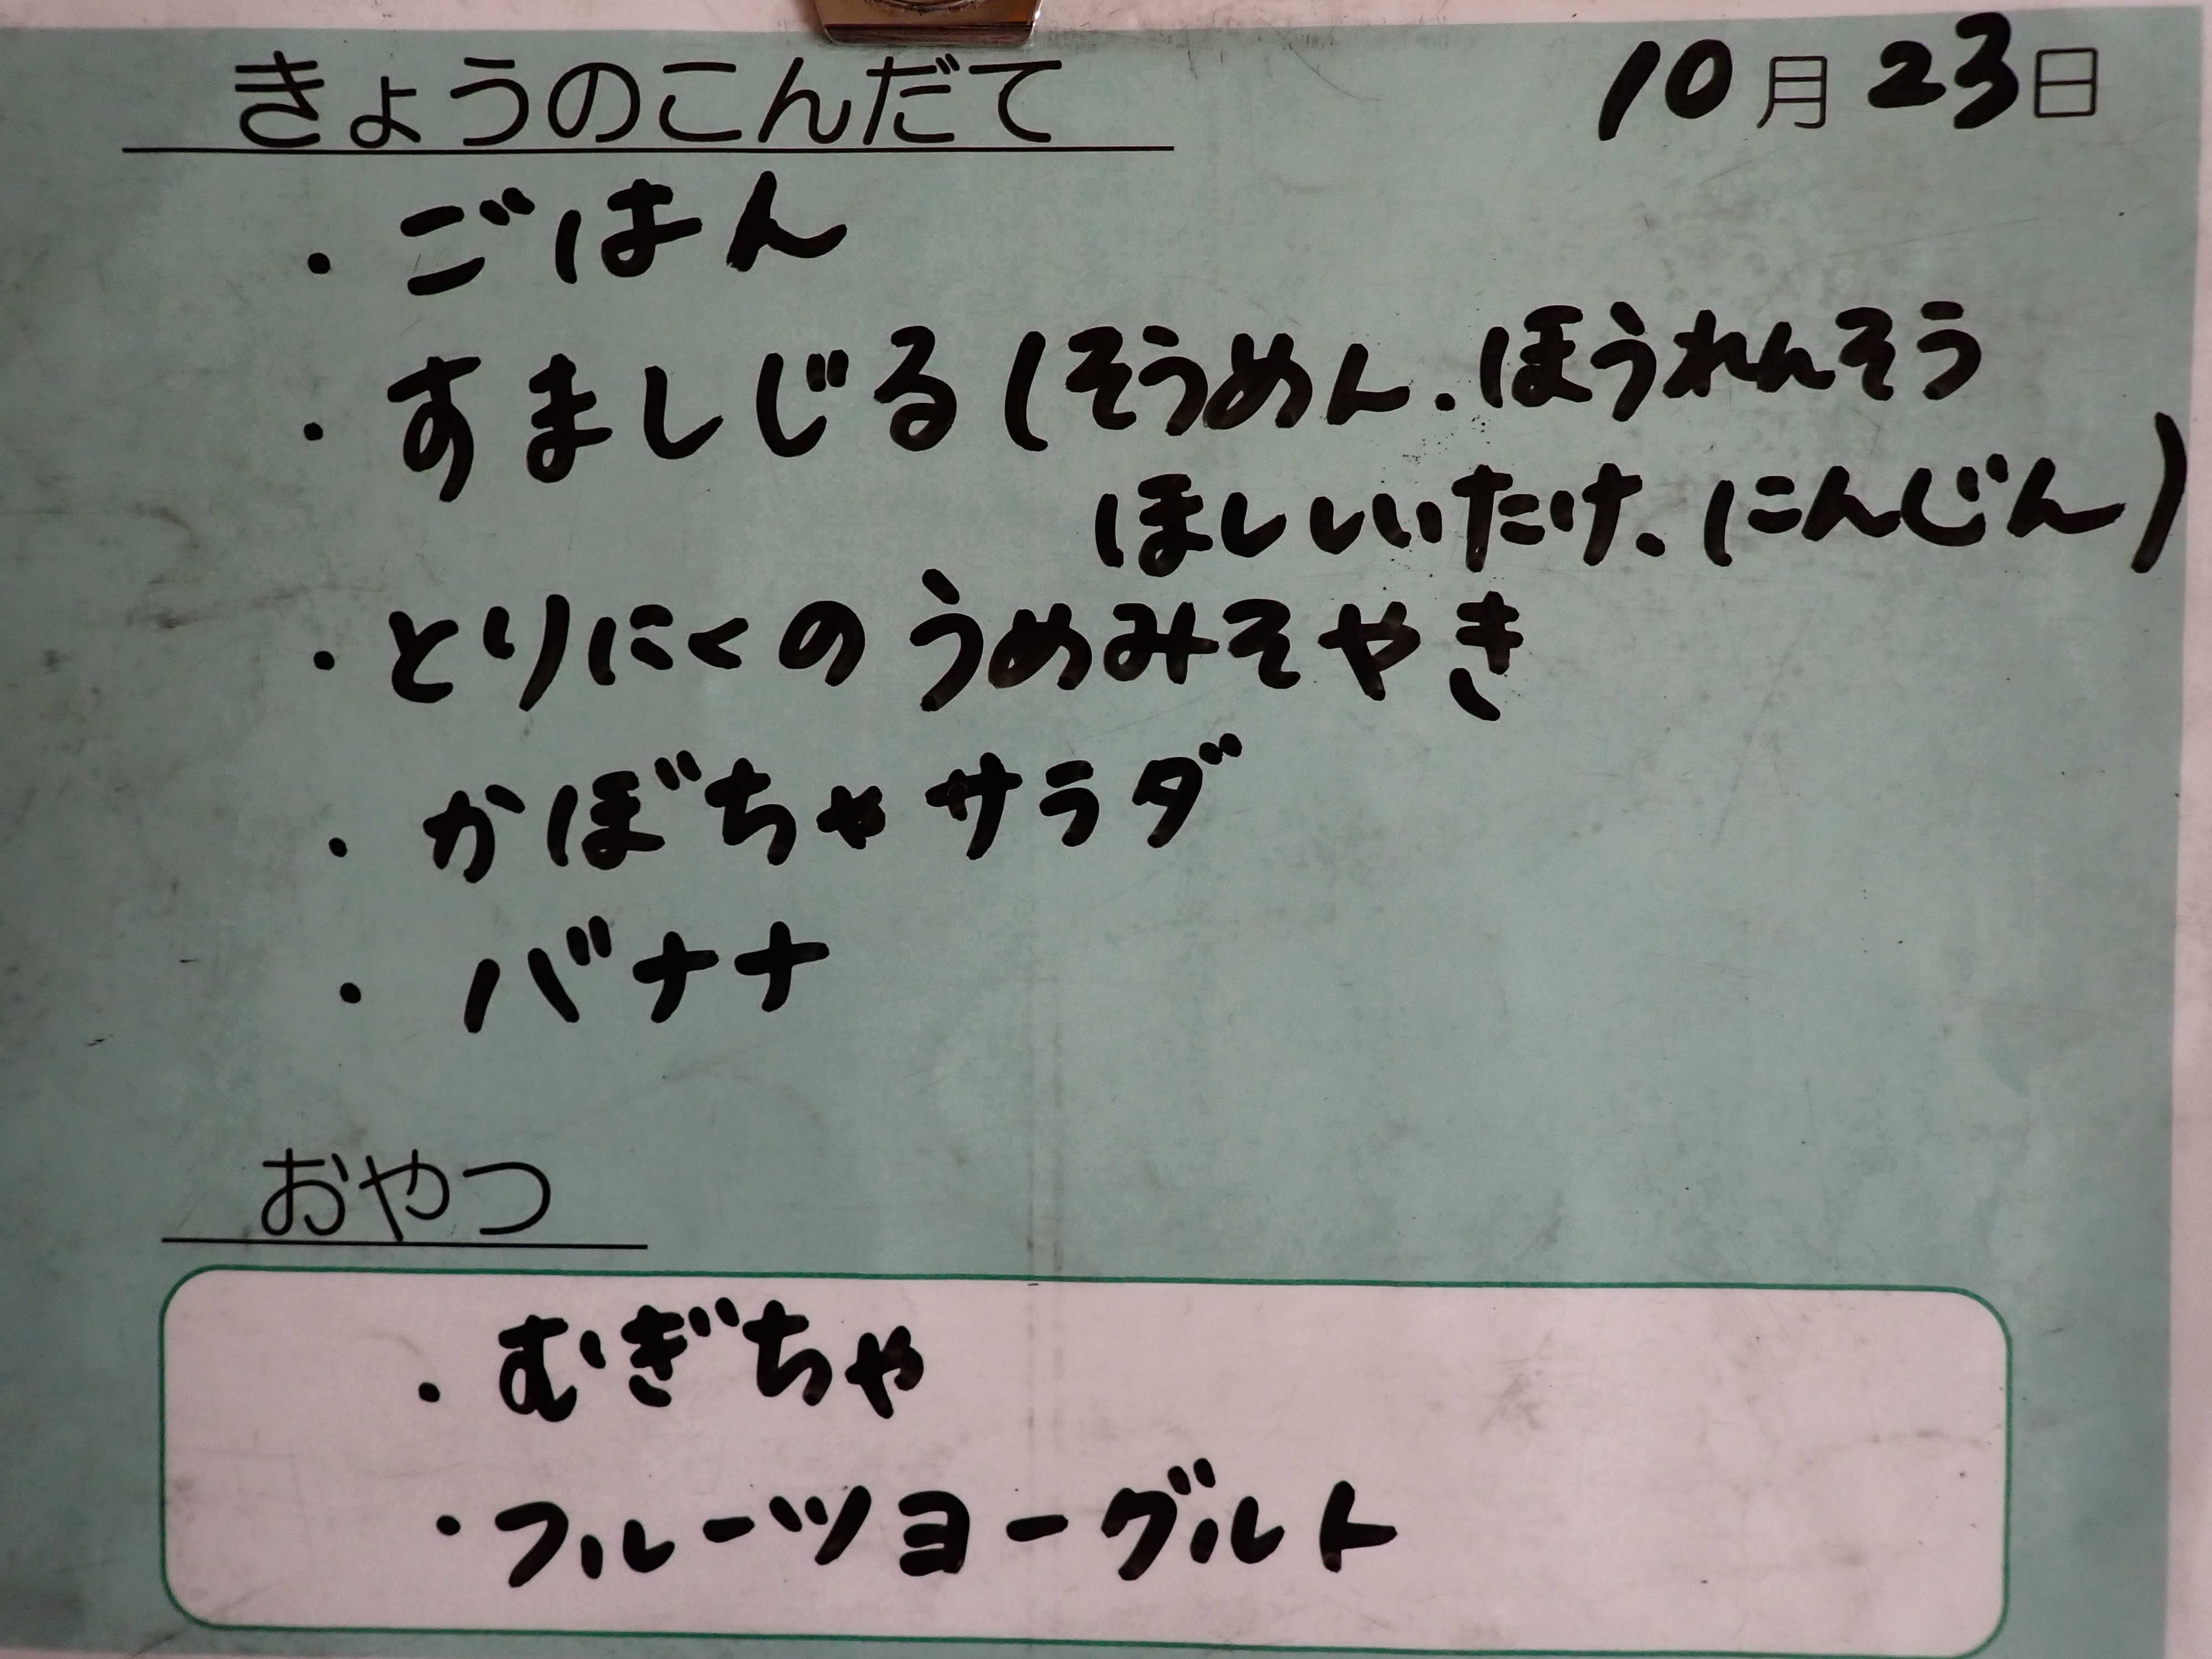 きょうのこんだて 10月23日
・ごはん
・すましじる(そうめん.ほうれんそう
ほししいたけ、にんじん)
・とりにくのうめみそやき
・かぼちゃサラダ
・バナナ
おやつ
・むぎちゃ
・フルーツヨーグルト